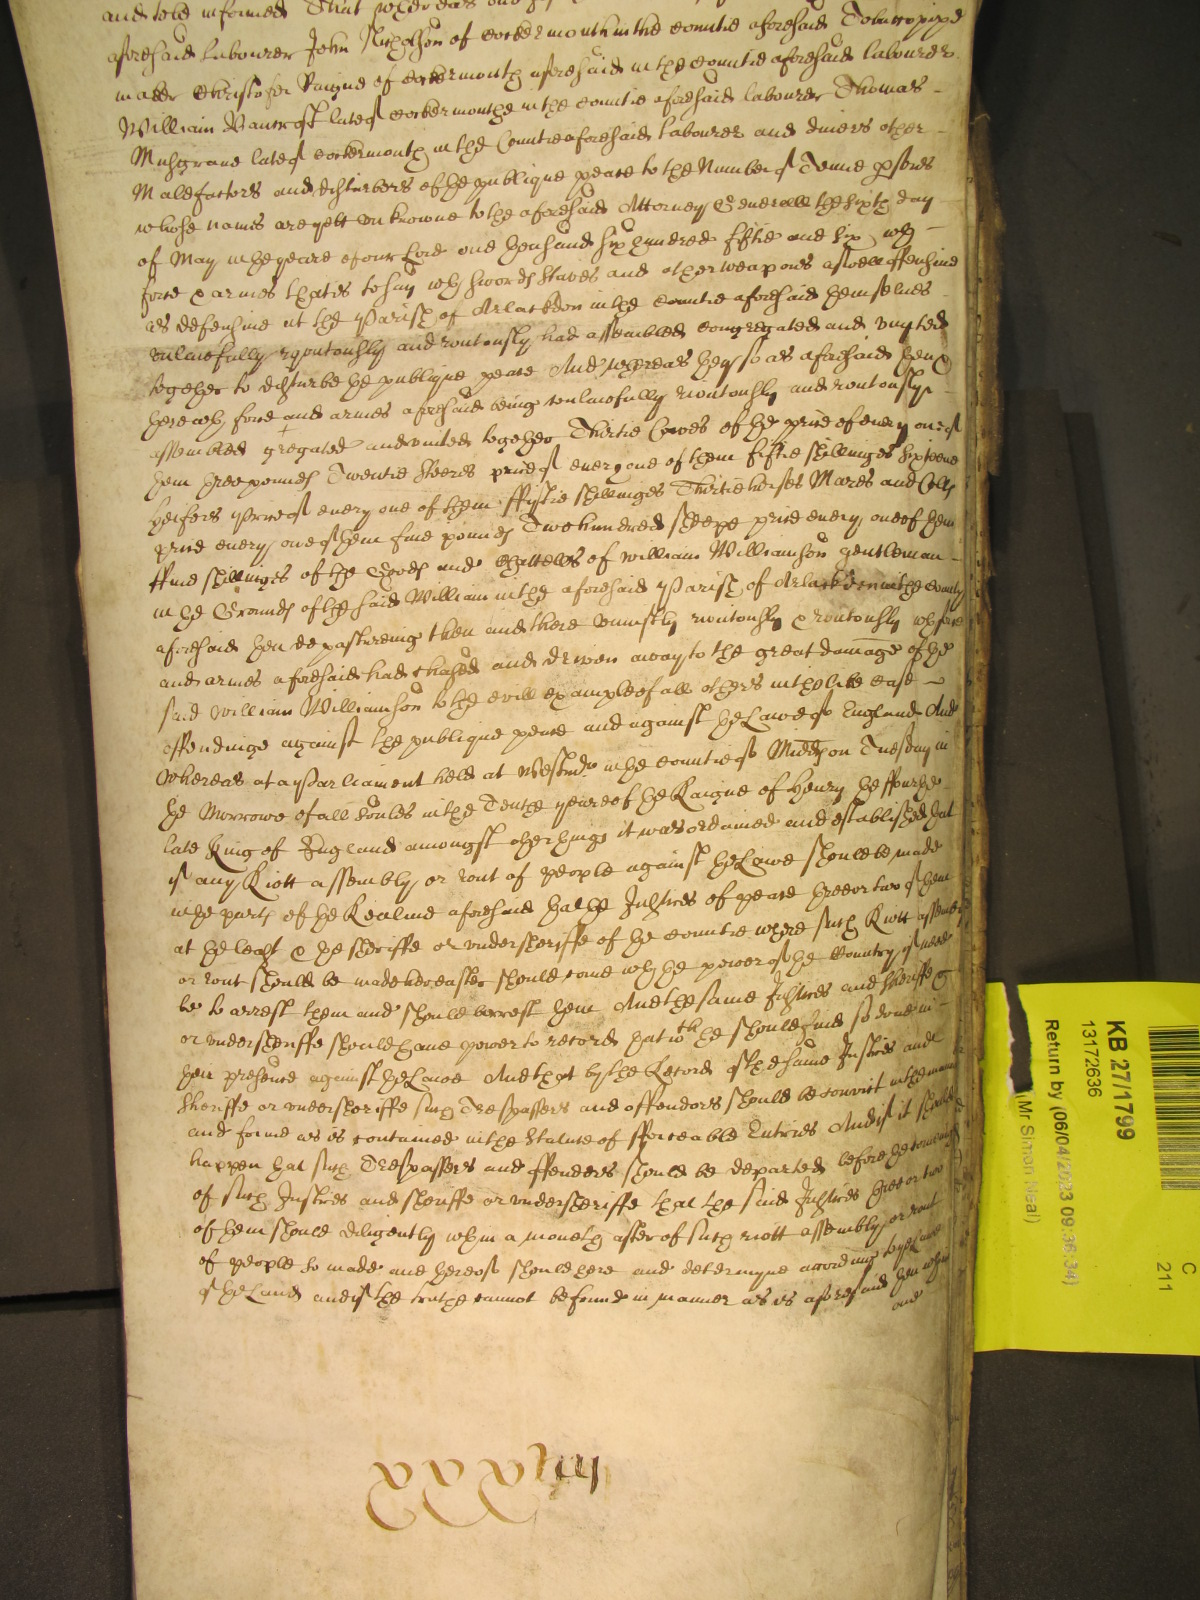 and told informed That whereas one
aforesaid Labourer John Nicholson of Cockermouth in the Countie aforesaid Tobaccopipe
maker Christofer Vaigne of Cockermouth aforesaid in the Countie aforesaid labourer
William Bancroft late of Cockermouthe in the Countie aforesaid labourer Thomas
Musgrave late of Cockermouth in the Countie aforesaid Labourer and divers other
Malefactors and disturbers of the publique peace to the Number of Tenne psons
whose names are yett unknowne to the aforesaid Attorney Generall the sixth day
of May in the yeare of our Lord one thousand six hundred fiftie and six with
force & armes that is to say with swords staves and other weapons aswell offensive
as defensive at the Parish of Arlackdon in the Countie aforesaid themselves
unlawfully ryoutously and routously had assembled congregated and unyted
together to disturbe the publique peace And whereas they so as aforesaid then &
there with force and armes aforesaid being unlawfully rioutously and routously
assembled gregated and united together Thirtie Cowes of the price of every one of
them three pounds Twentie steeres price of every one of them fiftie shillinges sixteene
heifers price of every one of them fyftie shillinges Thirtie horses Mares and Colts
price every one of them five pounds Two hundred sheepe price every one of them
ffive shillinges of the Goods and Chattells of William Williamson gentleman
in the Grounds of the said William in the aforesaid Parish of Arlackden in the County
aforesaid then depastureing then and there unjustly rioutously & routously with force
and armes aforesaid had chased and driven away to the great damage of the
said William Williamson to the evill example of all others in the like case
offendinge against the publique peace and against the Lawes of England And
whereas at a Parliament held at Westmr in the Countie of Midd on Tuesday in
the Morrowe of all soules in the Tenthe yeare of the Raigne of Henry the ffourthe
late King of England amongst other things it was ordained and established that
if any Riott assembly or rout of people against the Lawe should be made
in the parts of the Realme aforesaid that the Justices of peace three or two of them
at the least & the sheriffe or undersheriffe of the Countie where such Riott assembly
or rout should be made hereafter should come with the power of the Country if need
be to arrest them and should arrest them And the same Justices and sheriffe
or undersheriffe should have power to record that wch the should find so done in
their presence against the Lawe And that by the Record of the same Justices and
Sheriffe or undersheriffe such Trespassers and offendors should be convict in the manner
and forme as is contained in the statute of fforceable Entries And if it should
happen that such Trespassers and offenders should be departed before the coming
of such Justices and sheriffe or undersheriffe that the said Justices three or two
of them should diligently within a moneth after of such riott assembly or rout
of people so made and thereof should here and determyne according to the Lawe
of the Land and if the truthe cannot be found in manner as is aforesaid then within
and
KB 27/1799
13172636
Return by (06/04/2023 09:36:34)
Mr Simon Neal)
C
211